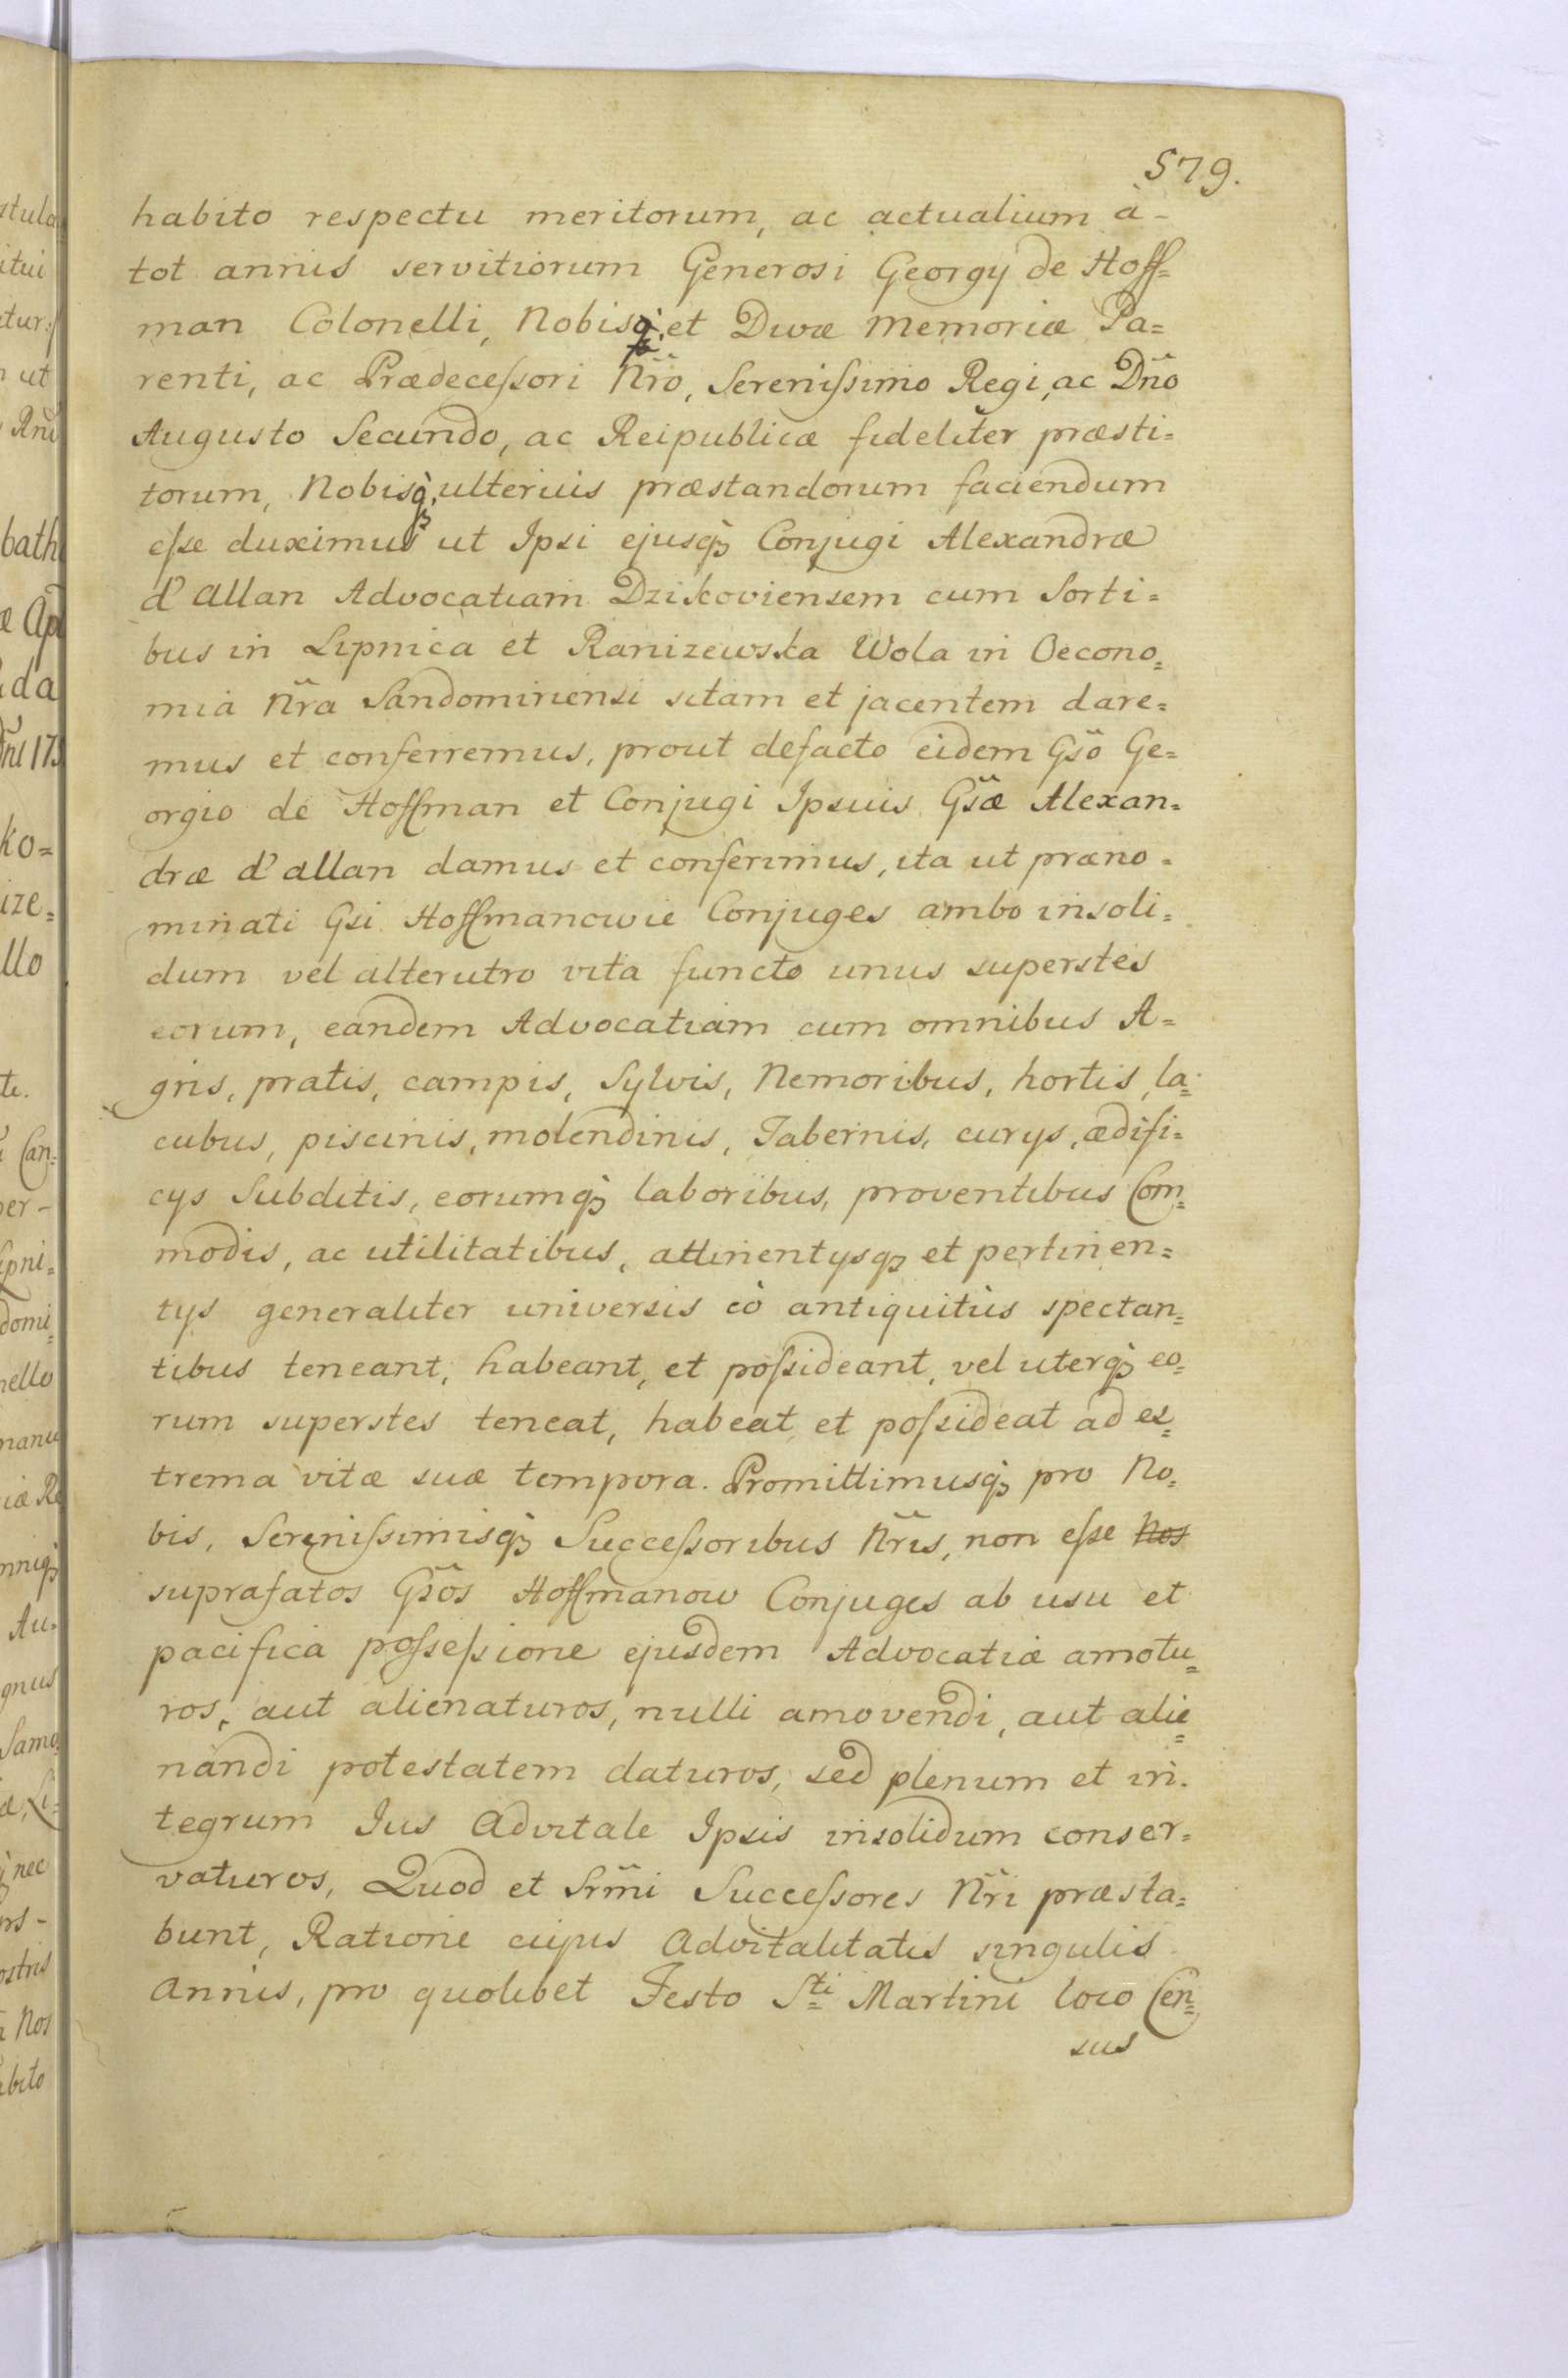 579.
habito respectu meritorum, ac actualium à-
tot annis servitiorum Generosi Georgy de Hoff=
man Colonelli, Nobisq; et Divæ Memoriæ Pa=
renti, ac Prædecessori Nr̃o, Serenissimo Regi, ac Dño
Augusto Secundo, ac Reipublicæ fideliter præsti=
torum, Nobisq; ulterius præstandorum faciendum
esse duximus ut Ipsi ejusq; Conjugi Alexandræ
d'allan Advocatiam Dzikoviensem cum Sorti=
bus in Lipnica et Ranizewska Wola in Oecono=
mia Nr̃a Sandomiriensi sitam et jacentem dare=
mus et conferremus, prout defacto eidem Gs̃o Ge=
orgio de Hoffman et Conjugi Ipsius Gs̃æ Alexan=
dræ d'allan damus et conferimus, ita ut præno=
minati Gsi Hoffmanowie Conjuges ambo insoli=
dum vel alterutro vita functo unus superstes
eorum, eandem Advocatiam cum omnibus A=
gris, pratis, campis, Sylvis, Nemoribus, hortis, la=
cubus, piscinis, molendinis, Tabernis, curys, ædifi=
cys Subditis, eorumq; laboribus, proventibus Com=
modis, ac utilitatibus, attinentysq; et pertinen=
tys generaliter universis eò antiquitùs spectan=
tibus teneant, habeant, et possideant, vel uterq; eo=
rum superstes teneat, habeat et possideat ad ex=
trema vitæ suæ tempora. Promittimusq; pro No=
bis, Serenissimisq; Successoribus Nr̃is, non esse Nos
suprafatos Gs̃os Hoffmanow Conjuges ab usu et
pacifica possessione ejusdem Advocatiæ amotu=
ros, aut alienaturos, nulli amovendi, aut alie=
nandi potestatem daturos, sed plenum et in=
tegrum Jus Advitale Ipsis insolidum conser=
vaturos, Quod et Srm̃i Successores Nr̃i præsta=
bunt, Ratione cujus Advitalitatis singulis
Annis, pro quolibet Festo Sti Martini loco Cen=
sus